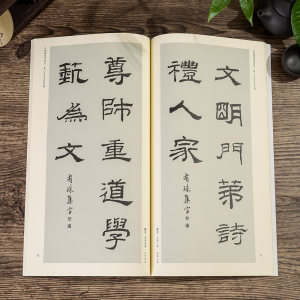 文明門第詩
禮人家
尊師重道學
藝為文